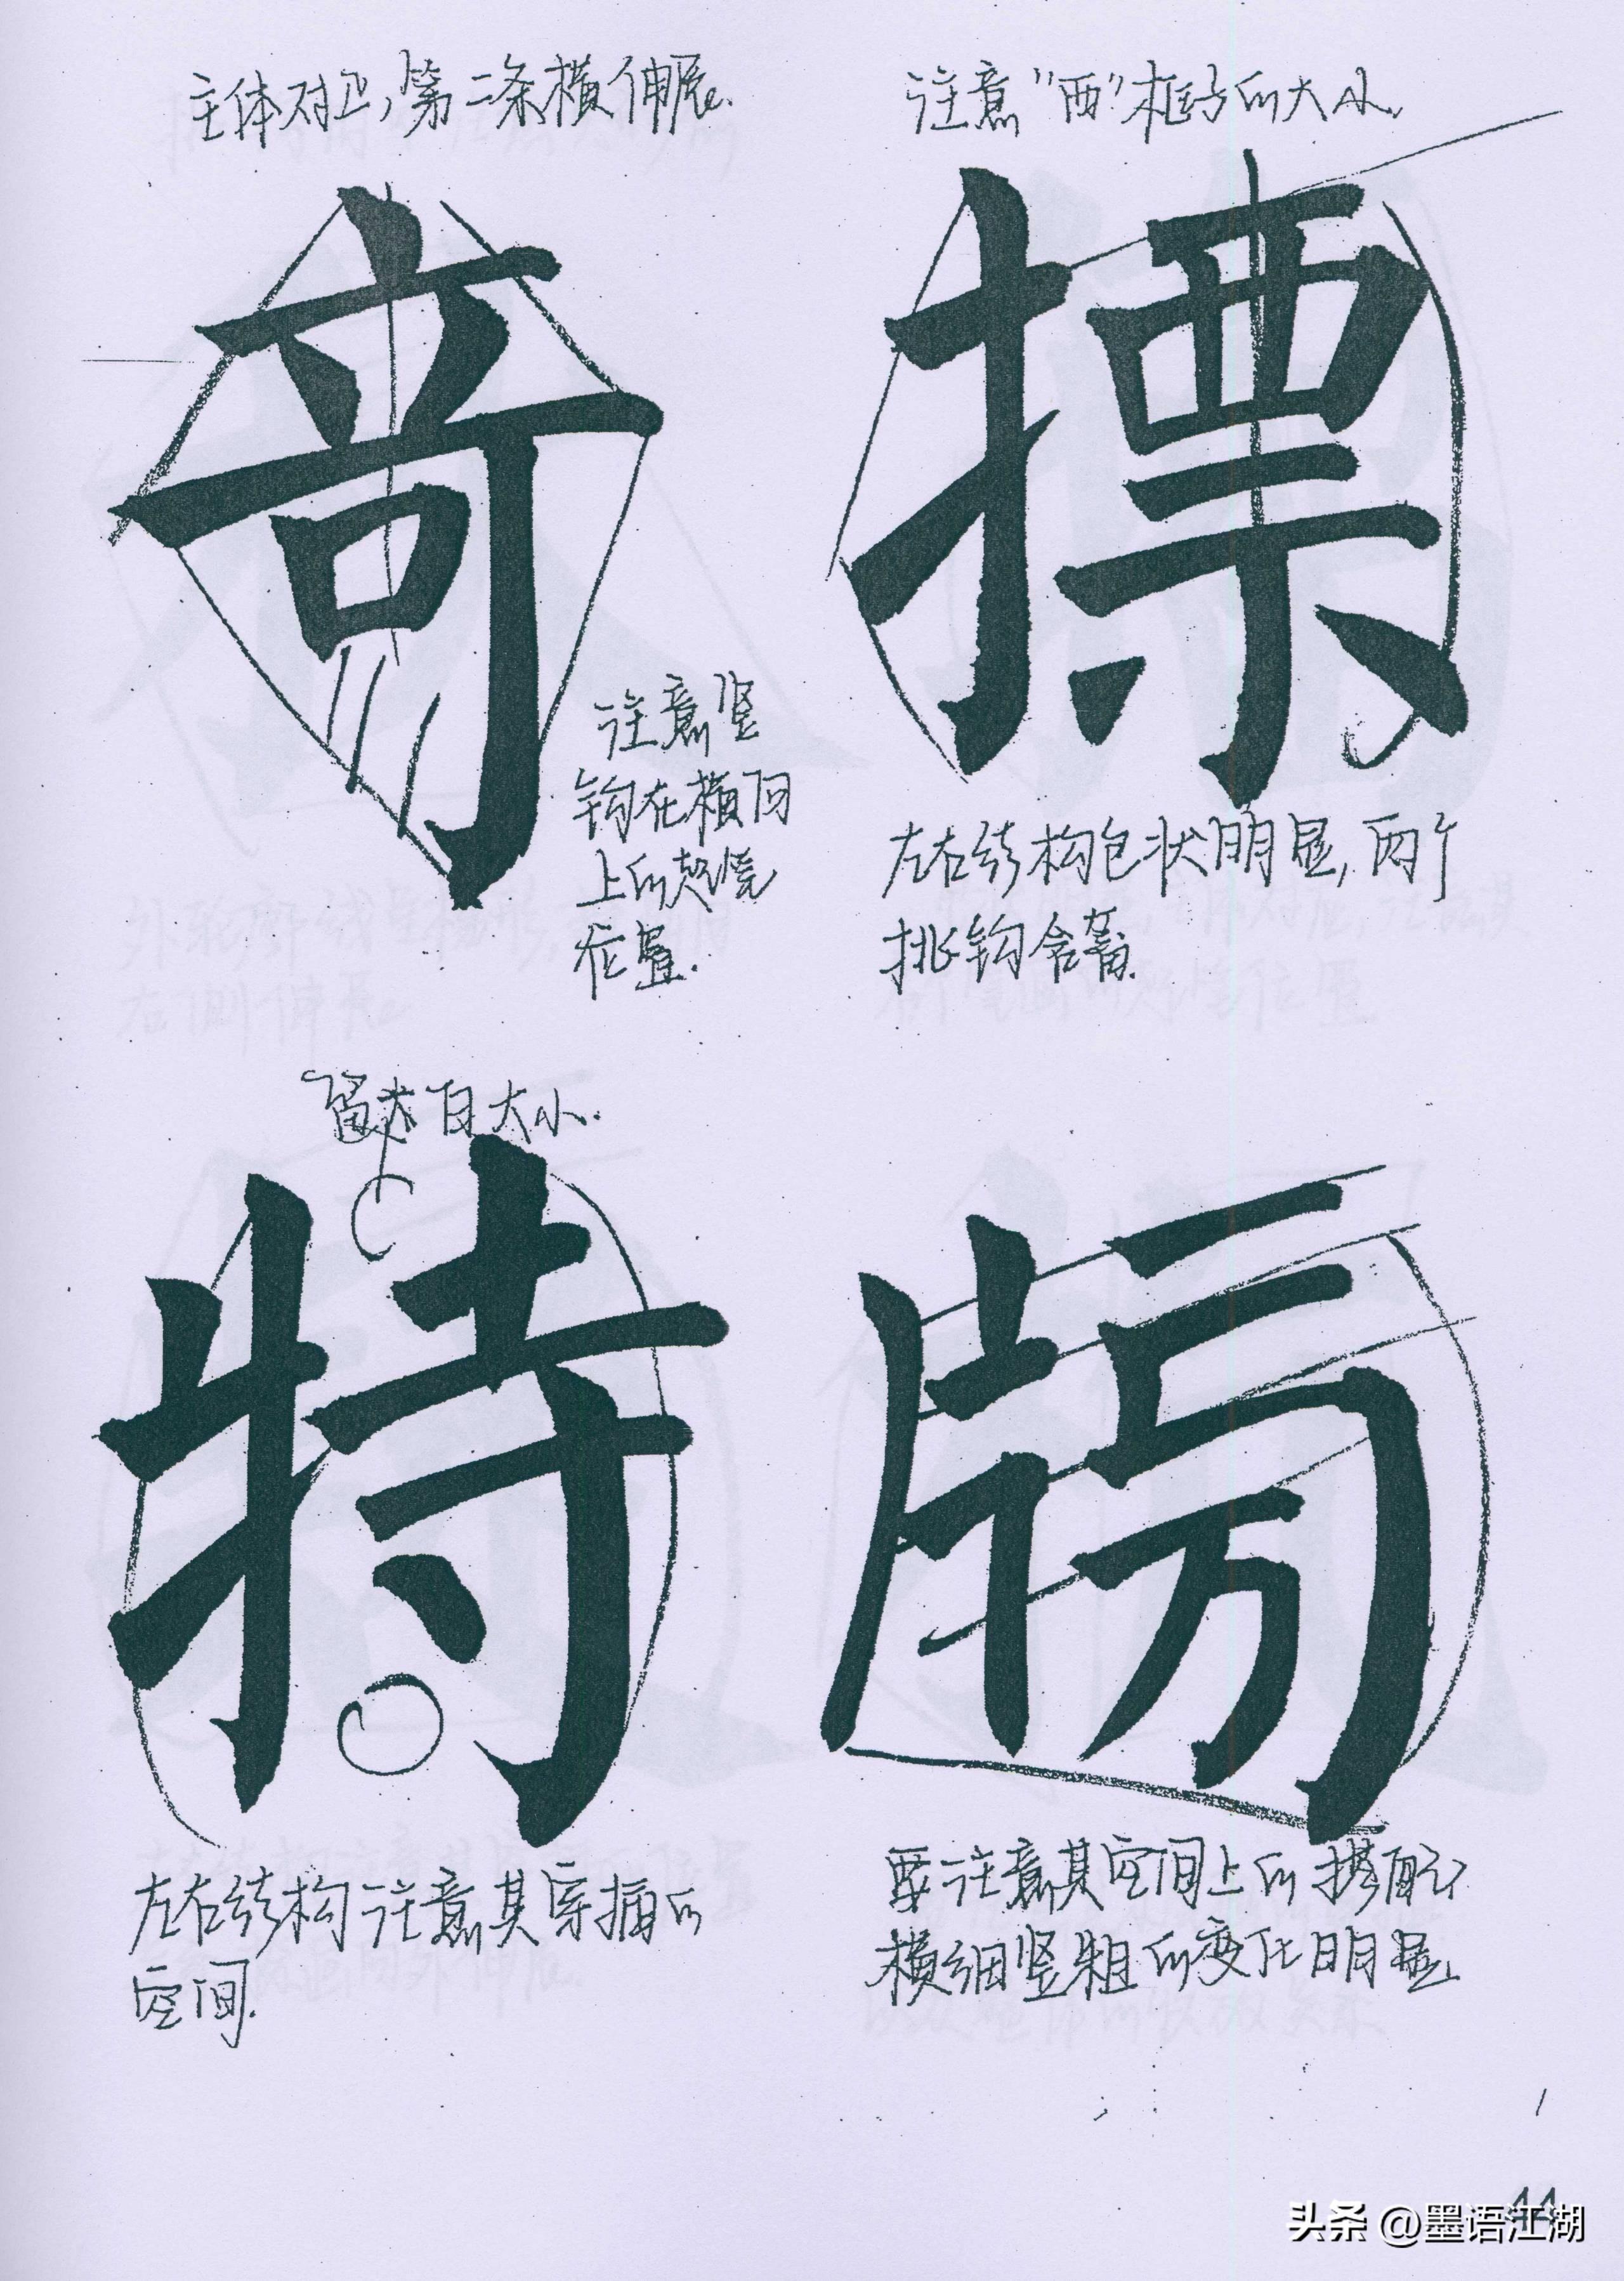 主体对正,第二条横伸展.
竒
注意竖
钩在横画
上的起笔
位置.
注意"西"框子的大小.
摽
左右结构包状明显,两个
挑钩含蓄.
留白大小.
特
左右结构注意其穿插的
空间.
牓
要注意其空间上的搭配
横细竖粗的变化明显.
44
头条 @墨语江湖